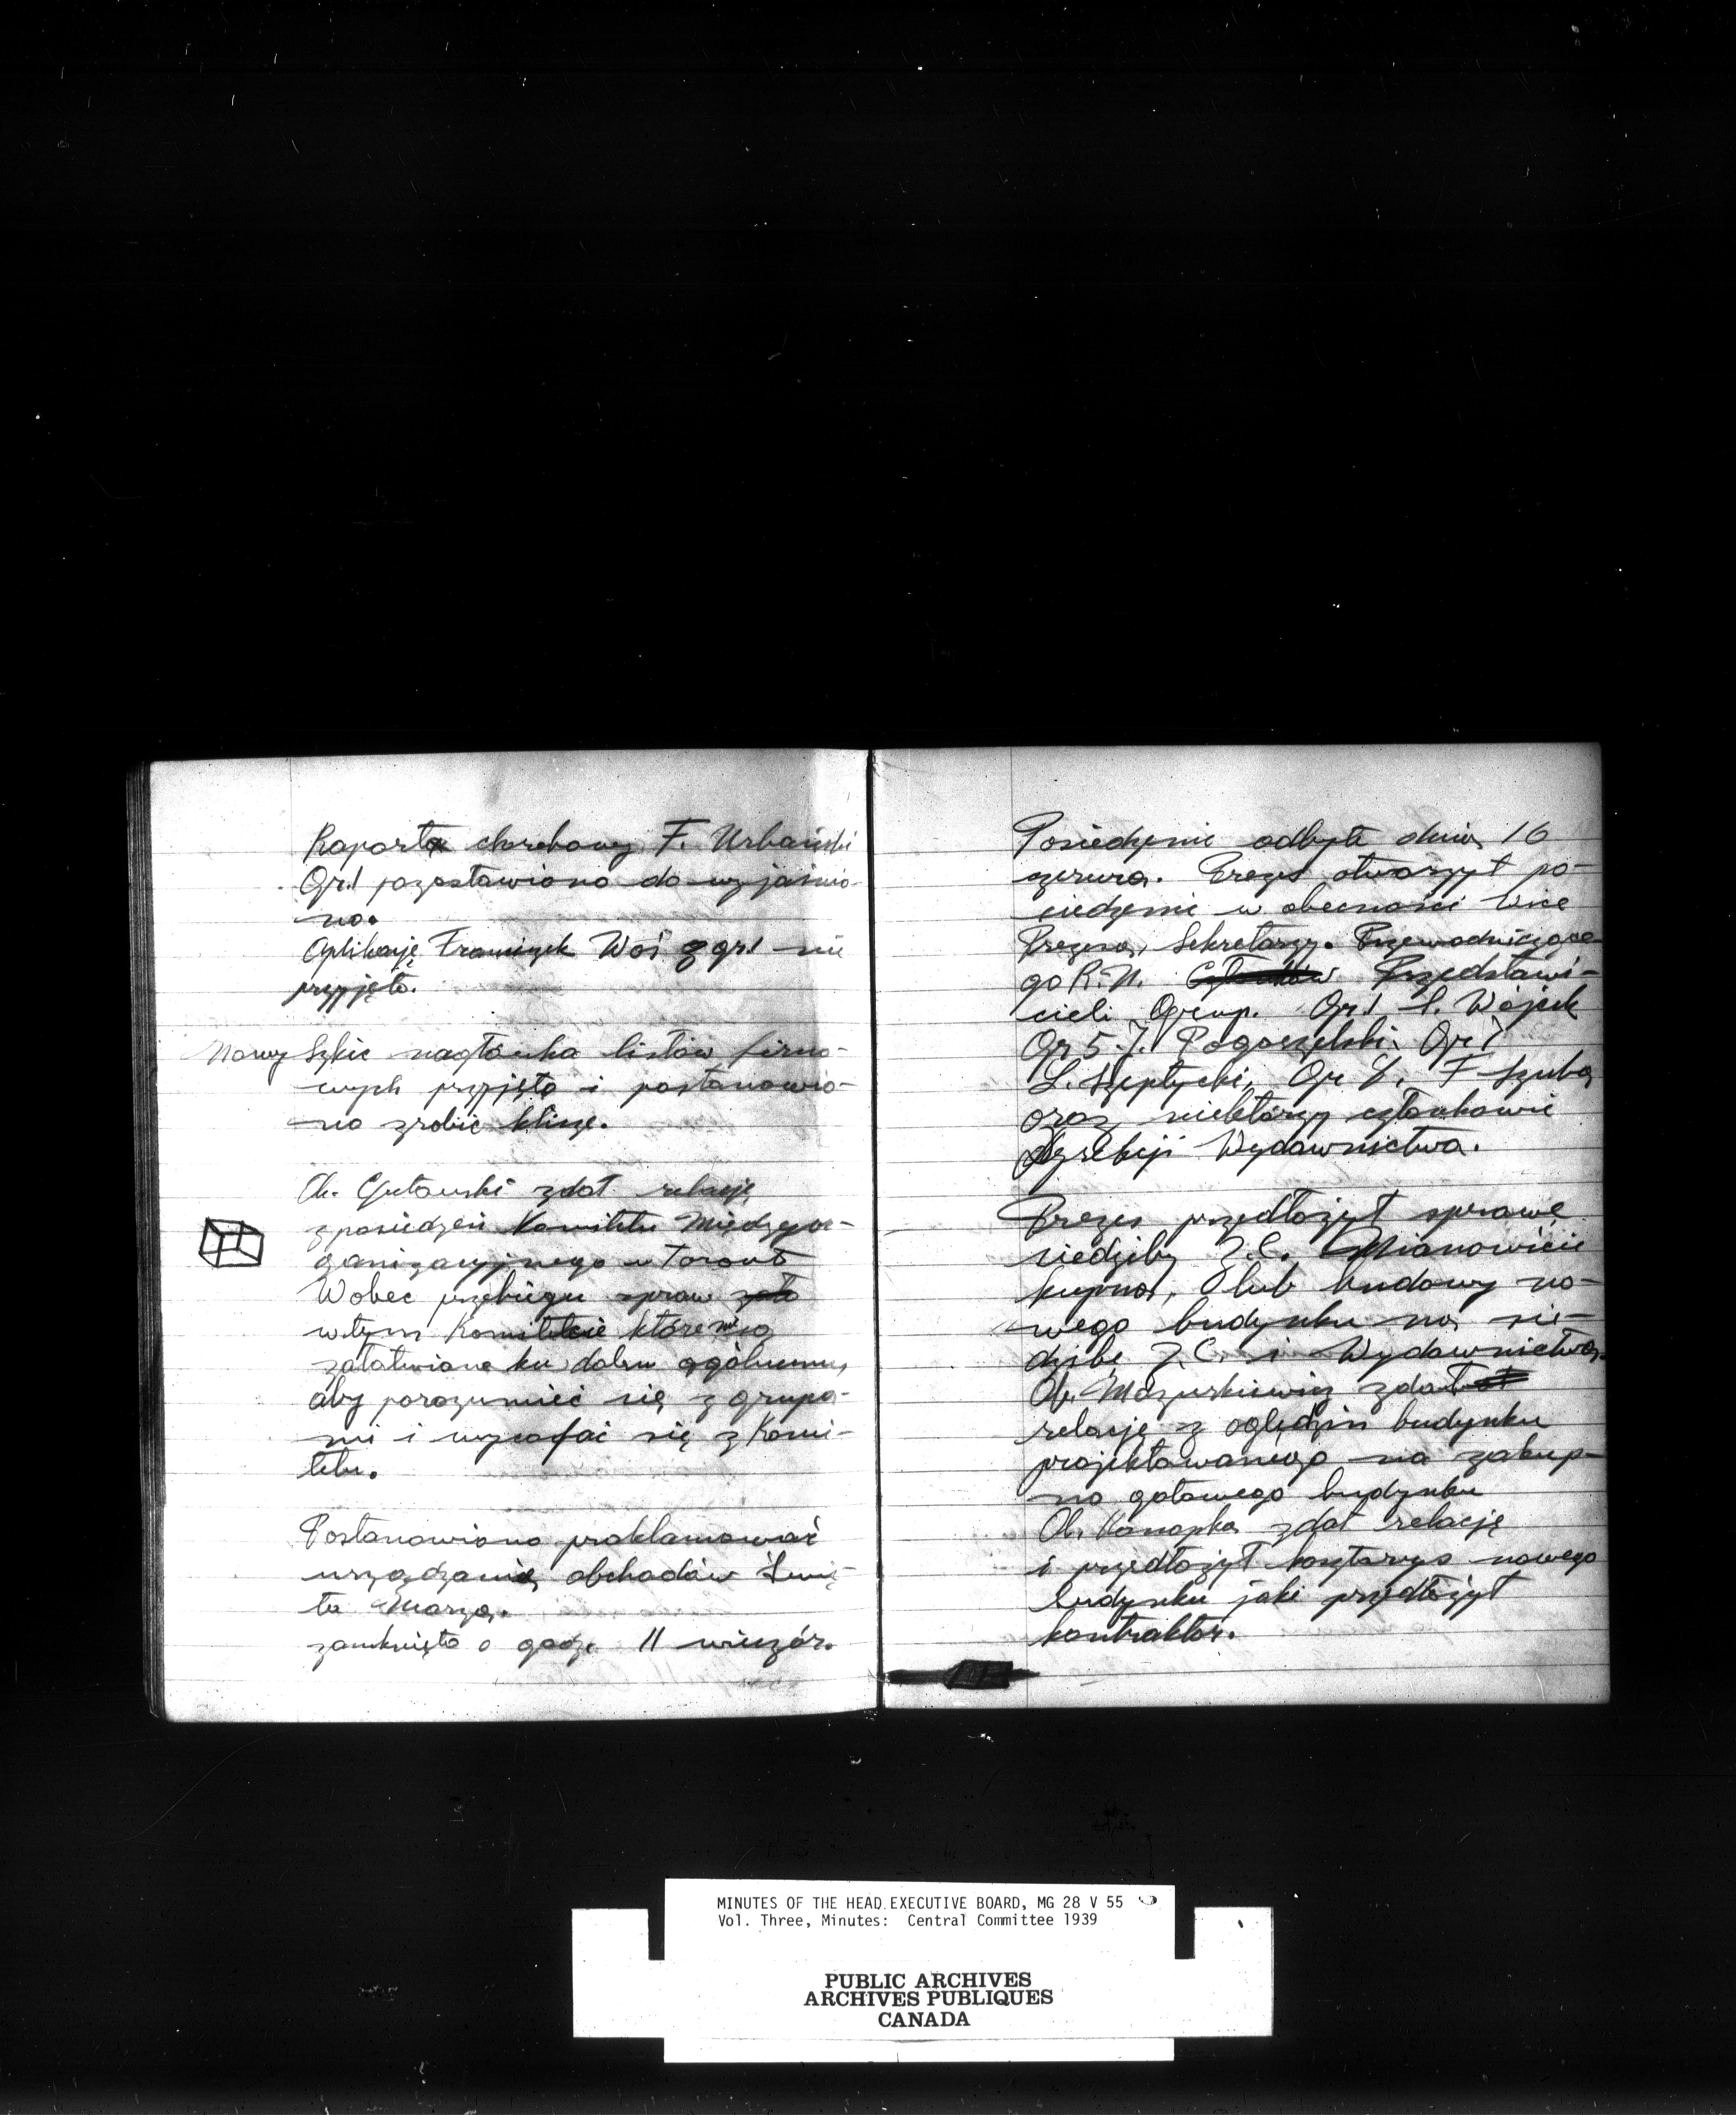 Raporta chorobowy F. Urbański
Gr.1 pozostawiono do wyjaśnie-
na.
Aplikację Franciszek Woś z gr.1 nie
przyjęto.
Nowy Szkic nagłówka listów firmo-
wych przyjęto i postanowio-
no zrobić kliszę.
Ob. zdał relację
z posiedzeń Komitetu Międzyor-
ganizacyjnego w Toronto
Wobec przebiegu spraw
w tym Komitetcie które nie są
załatwiane ku dobru ogólnemu,
aby porozumieć się z grupa-
mi i wycofać się z Komi-
tetu.
Postanowiono proklamować
urządzanie obchodów Świę-
ta Morza.
zamknięto o godz. 11 wieczór.
Posiedzenie odbyte dnia 16
czerwca. Prezes otworzył po-
siedzenie w obecności Wice
Prezesa, Sekretarzy. Przewodniczące-
go R.N. Przedstawi-
cieli Grup. Gr 1 S. Wójcik
Gr 5. J. Pogorzelski. Gr 7
L. Szeptycki, Gr F Szuba
oraz niektórzy członkowie
Dyrekcji Wydawnictwa.
Prezes przedłożył sprawę
siedziby Z.C. Mianowicie
kupna, lub budowy no-
wego budynku na sie-
dzibę Z.C. i Wydawnictwa.
Ob. Mazurkiewicz zdał
relację z oględzin budynku
projektowanego na zakup-
no gotowego budynku
Ob. Konopka zdał relację
i przedłożył kosztorys nowego
budynku jaki przedłożył
kontraktor.
MINUTES OF THE HEAD EXECUTIVE BOARD, MG 28 V 55
Vol. Three, Minutes: Central Committee 1939
PUBLIC ARCHIVES
ARCHIVES PUBLIQUES
CANADA